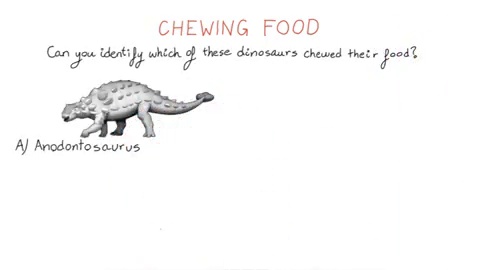 CHEWING FOOD
Can you identify which of these dinosaurs chewed their food?
A) Anodontosaurus